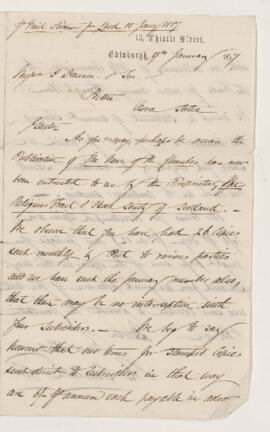 pr Mail Steamer from Lpool 10 Jany 1857
13, Thistle Street,
Edinburgh, 9th January 1857
Messrs J Dawson & Son
Pictou
Nova Scotia
Gentn
As you may perhaps be aware the
Publication of The of the has now
been entrusted to us by the Proprietors, The
Religious Tract & Book Society of Scotland. —
We observe that you have had 26 Copies
sent monthly by Post to various parties
and we have sent the January number also,
that there may be no interruption with
your Subscribers. — We beg to say
however that our terms for stamped copies
sent direct to Subscribers in that way
are pr annum each payable in advance